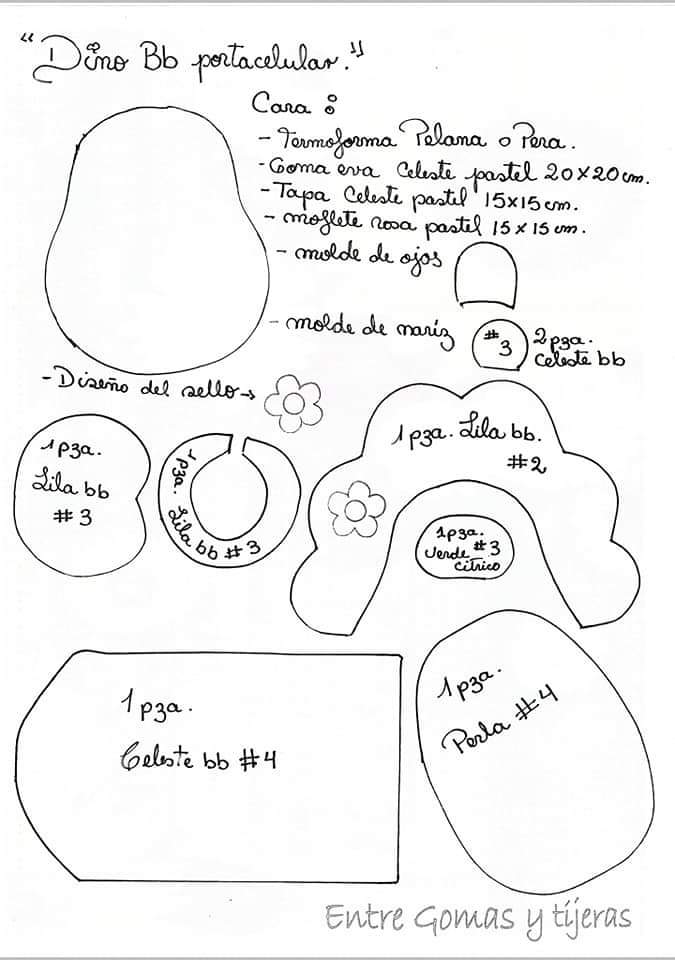 "Dino Bb portacelular."
Cara:
- Termoforma Pelana o Pera.
- Goma eva Celeste pastel 20x20 cm.
- Tapa Celeste pastel 15x15 cm.
- moflete rosa pastel 15 x 15 cm.
- molde de ojos
- molde de nariz
#3
2 pza.
Celeste bb
- Diseño del sello→
1 pza.
Lila bb
#3
1 pza. Lila bb #3
1 pza. Lila bb.
#2
1 pza.
Verde #3
Cítrico
1 pza.
Celeste bb #4
1 pza.
Perla #4
Entre Gomas y tijeras